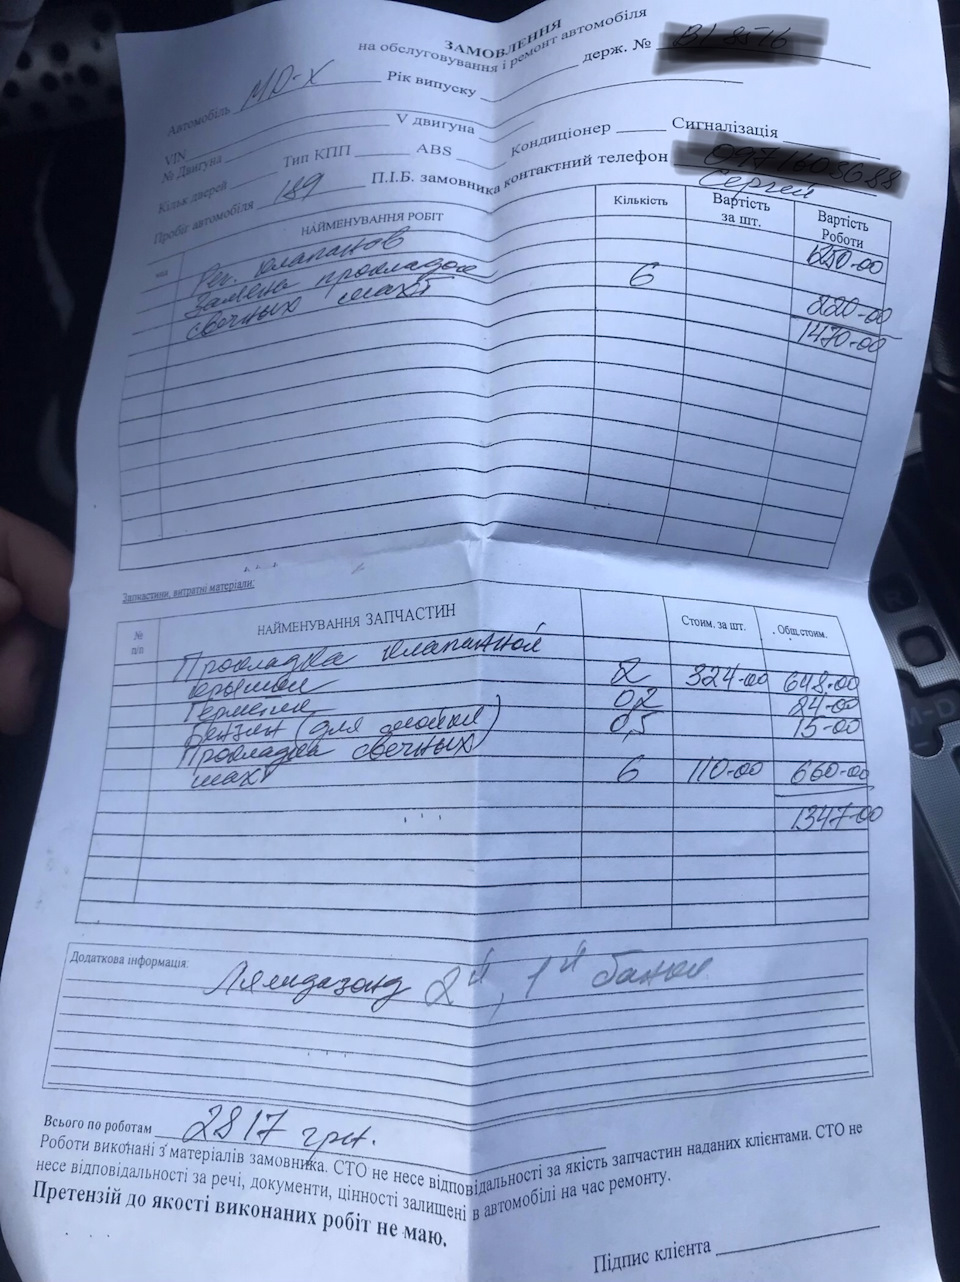 ЗАМОВЛЕННЯ
на обслуговування і ремонт автомобіля
Автомобіль MD-X Рік випуску держ. №
VIN
№ Двигуна V двигуна Кондиціонер Сигналізація
Кільк дверей Тип КПП ABS
Пробіг автомобіля 189 П.І.Б. замовника контактний телефон
Сергей
НАЙМЕНУВАННЯ РОБІТ Кількість Вартість за шт. Вартість Роботи
Рег. клапанов 1250-00
Замена прокладок
свечных шахт 6 220-00
1470-00
Запчастини, витратні матеріали:
№ п/п НАЙМЕНУВАННЯ ЗАПЧАСТИН Стоим. за шт. Общ.стоим.
Прокладка клапанной
крышки 2 324-00 648-00
Герметик 0,2 24-00
Бензин (для мойки) 0,5 15-00
Прокладка свечных
шахт 6 110-00 660-00
1347-00
Додаткова інформація:
Лямдазонд 2й, 1й банки
Всього по роботам 2817 грн.
Роботи виконані з матеріалів замовника. СТО не несе відповідальності за якість запчастин наданих клієнтами. СТО не
несе відповідальності за речі, документи, цінності залишені в автомобілі на час ремонту.
Претензій до якості виконаних робіт не маю.
Підпис клієнта